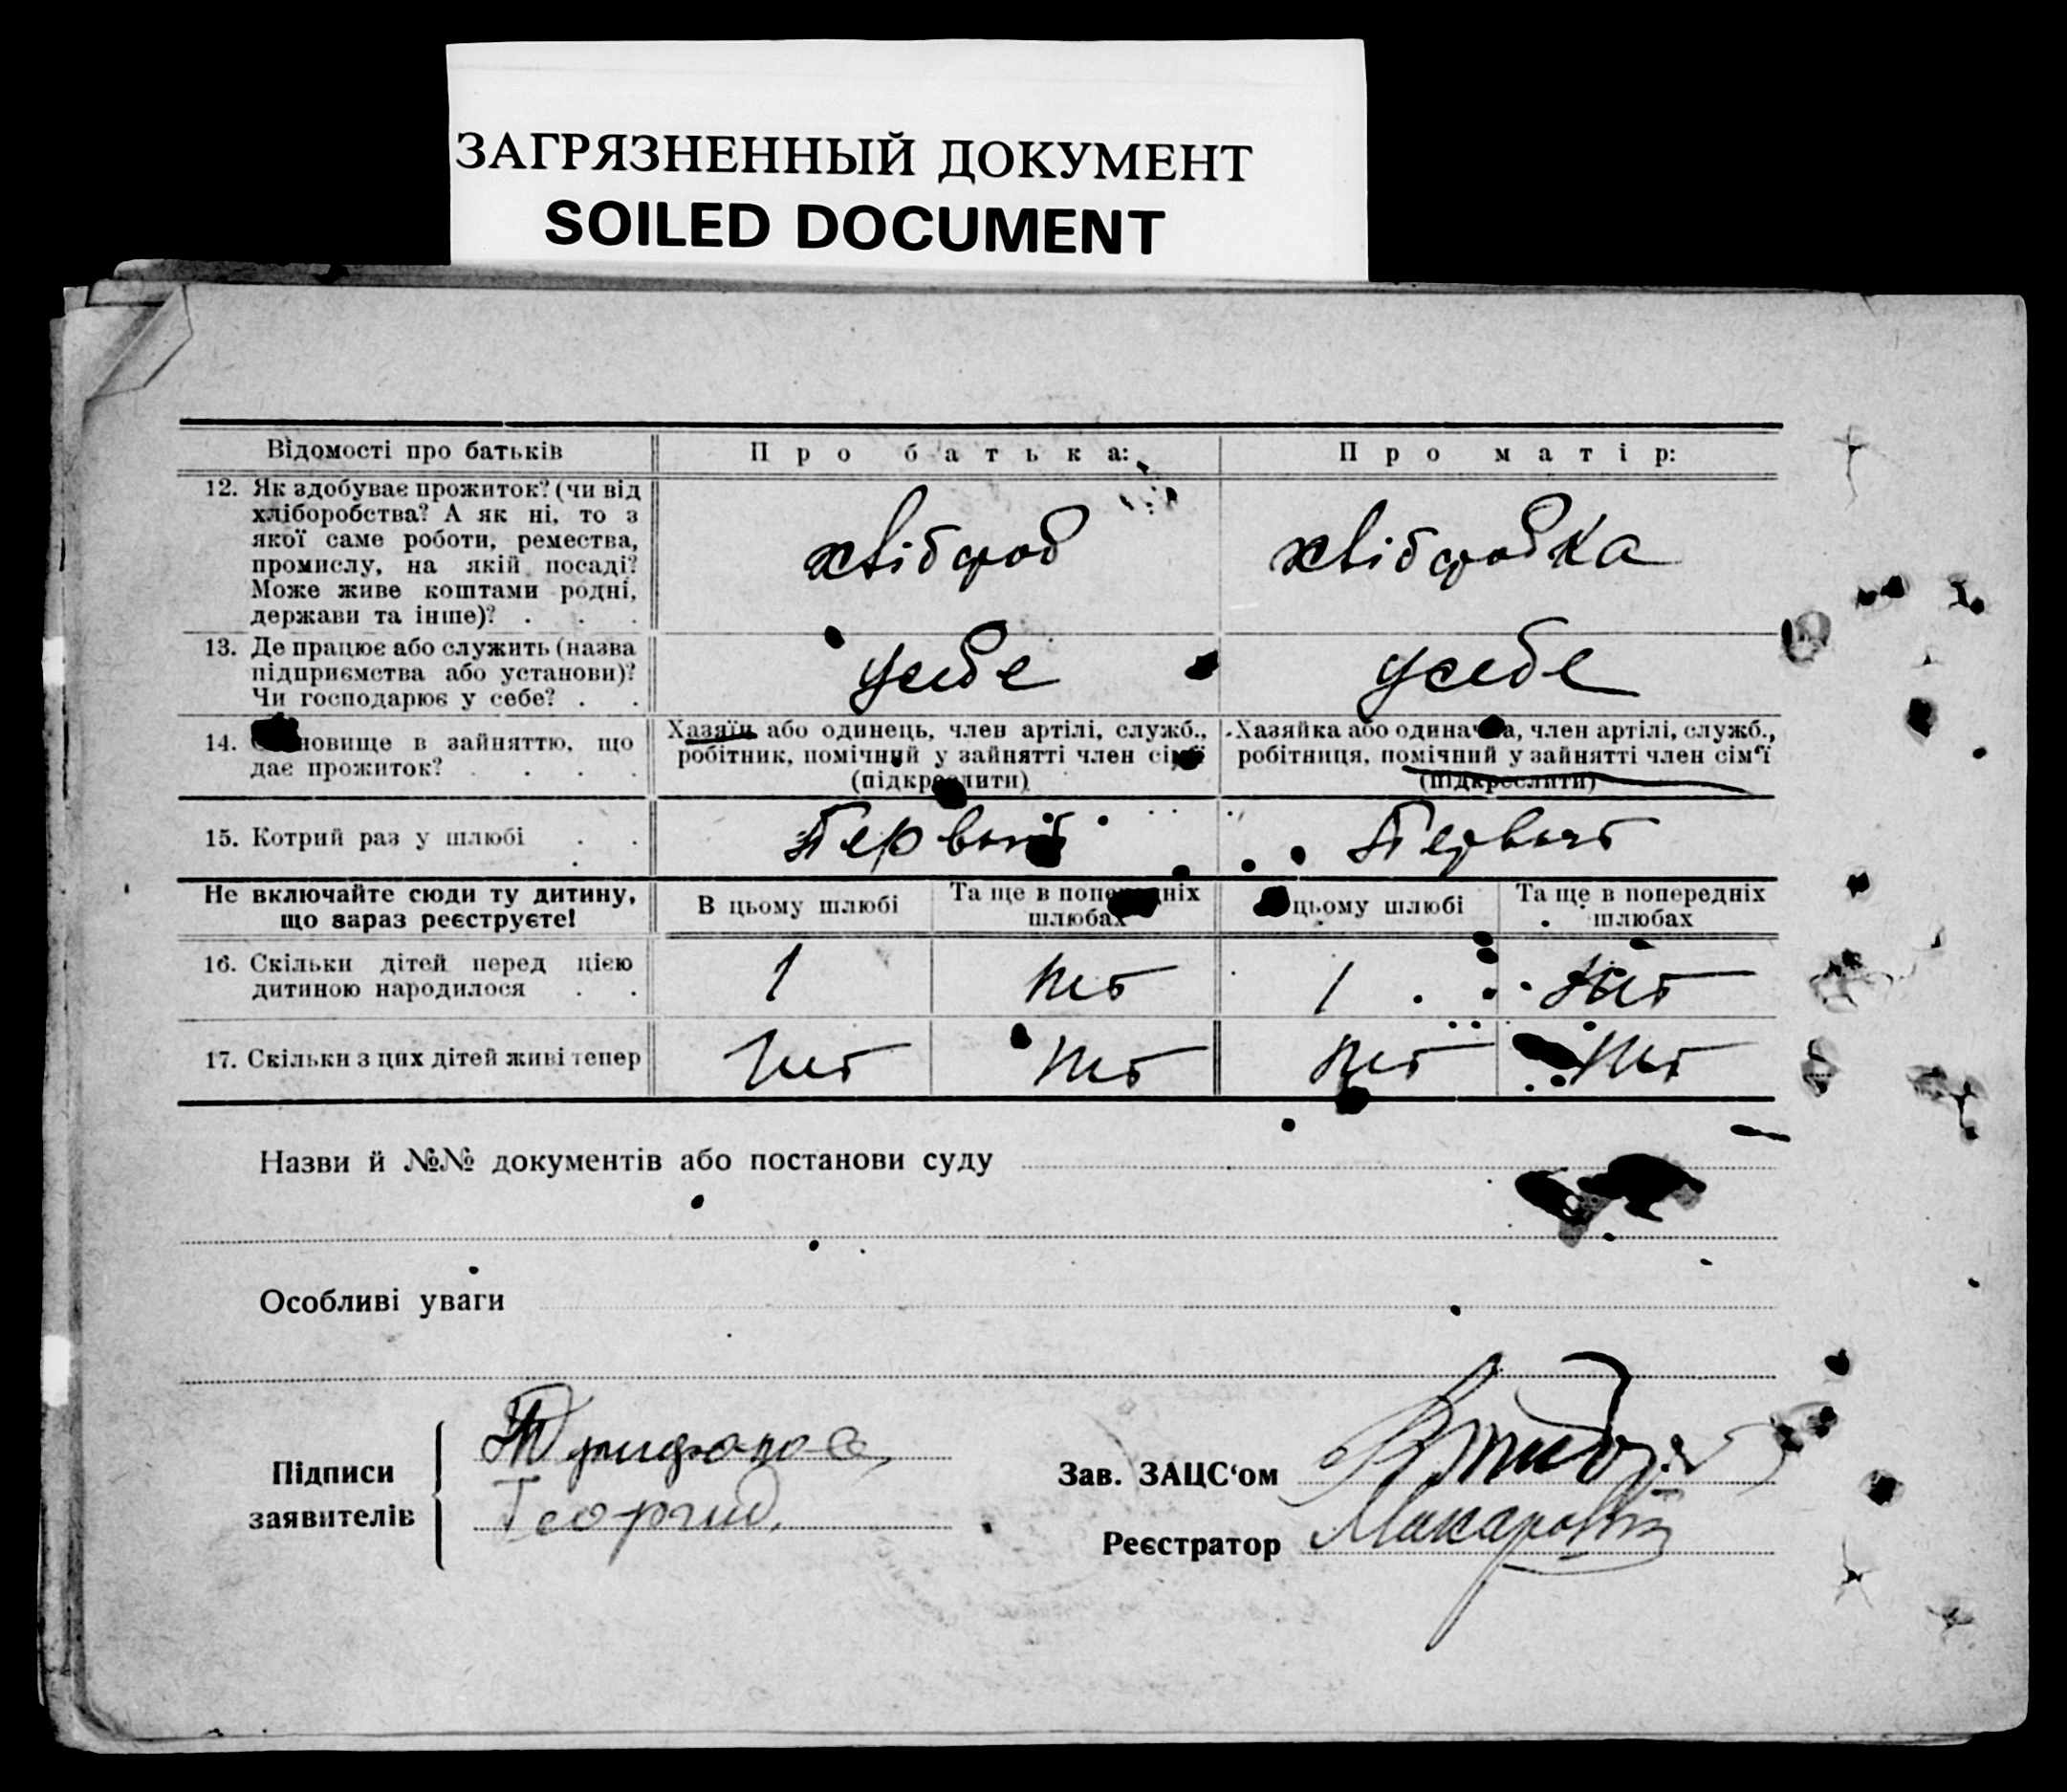 ЗАГРЯЗНЕННЫЙ ДОКУМЕНТ
SOILED DOCUMENT
Відомості про батьків
Про батька:
Про матір:
12. Як здобуває прожиток? (чи від
хліборобства? А як ні, то з
якої саме роботи, ремества,
промислу, на якій посаді?
Може живе коштами родні,
держави та інше)? . . .
хлібороб
хліборобка
13. Де працює або служить (назва
підприємства або установи)?
Чи господарює у себе? . .
у себе
у себе
14. новище в зайняттю, що
дає прожиток? . . . .
Хазяїн або одинець, член артілі, служб.,
робітник, помічний у зайнятті член
Хазяйка або одиначка, член артілі, служб.,
робітниця, помічний у зайнятті член сім'ї
(підкреслити)
15. Котрий раз у шлюбі . .
Первый
Первый
Не включайте сюди ту дитину,
що зараз реєструєте!
В цьому шлюбі
Та ще в попередніх
шлюбах
цьому шлюбі
Та ще в попередніх
шлюбах
16. Скільки дітей перед цією
дитиною народилося . .
1
Нет
1
Нет
17. Скільки з цих дітей живі тепер
Нет
Нет
Нет
Нет
Назви й №№ документів або постанови суду
Особливі уваги
Підписи
заявителів
Георгий
Зав. ЗАЦС'ом
Реєстратор